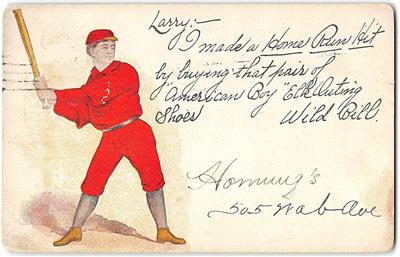 Larry:-
I made a Home Run Hit
by buying that pair of
"American Boy" Elk Outing
Shoes Wild Bill.
Hornung's
505 Wab Ave